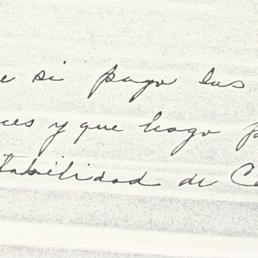 e si pago las
ces y que hago
tabilidad de C